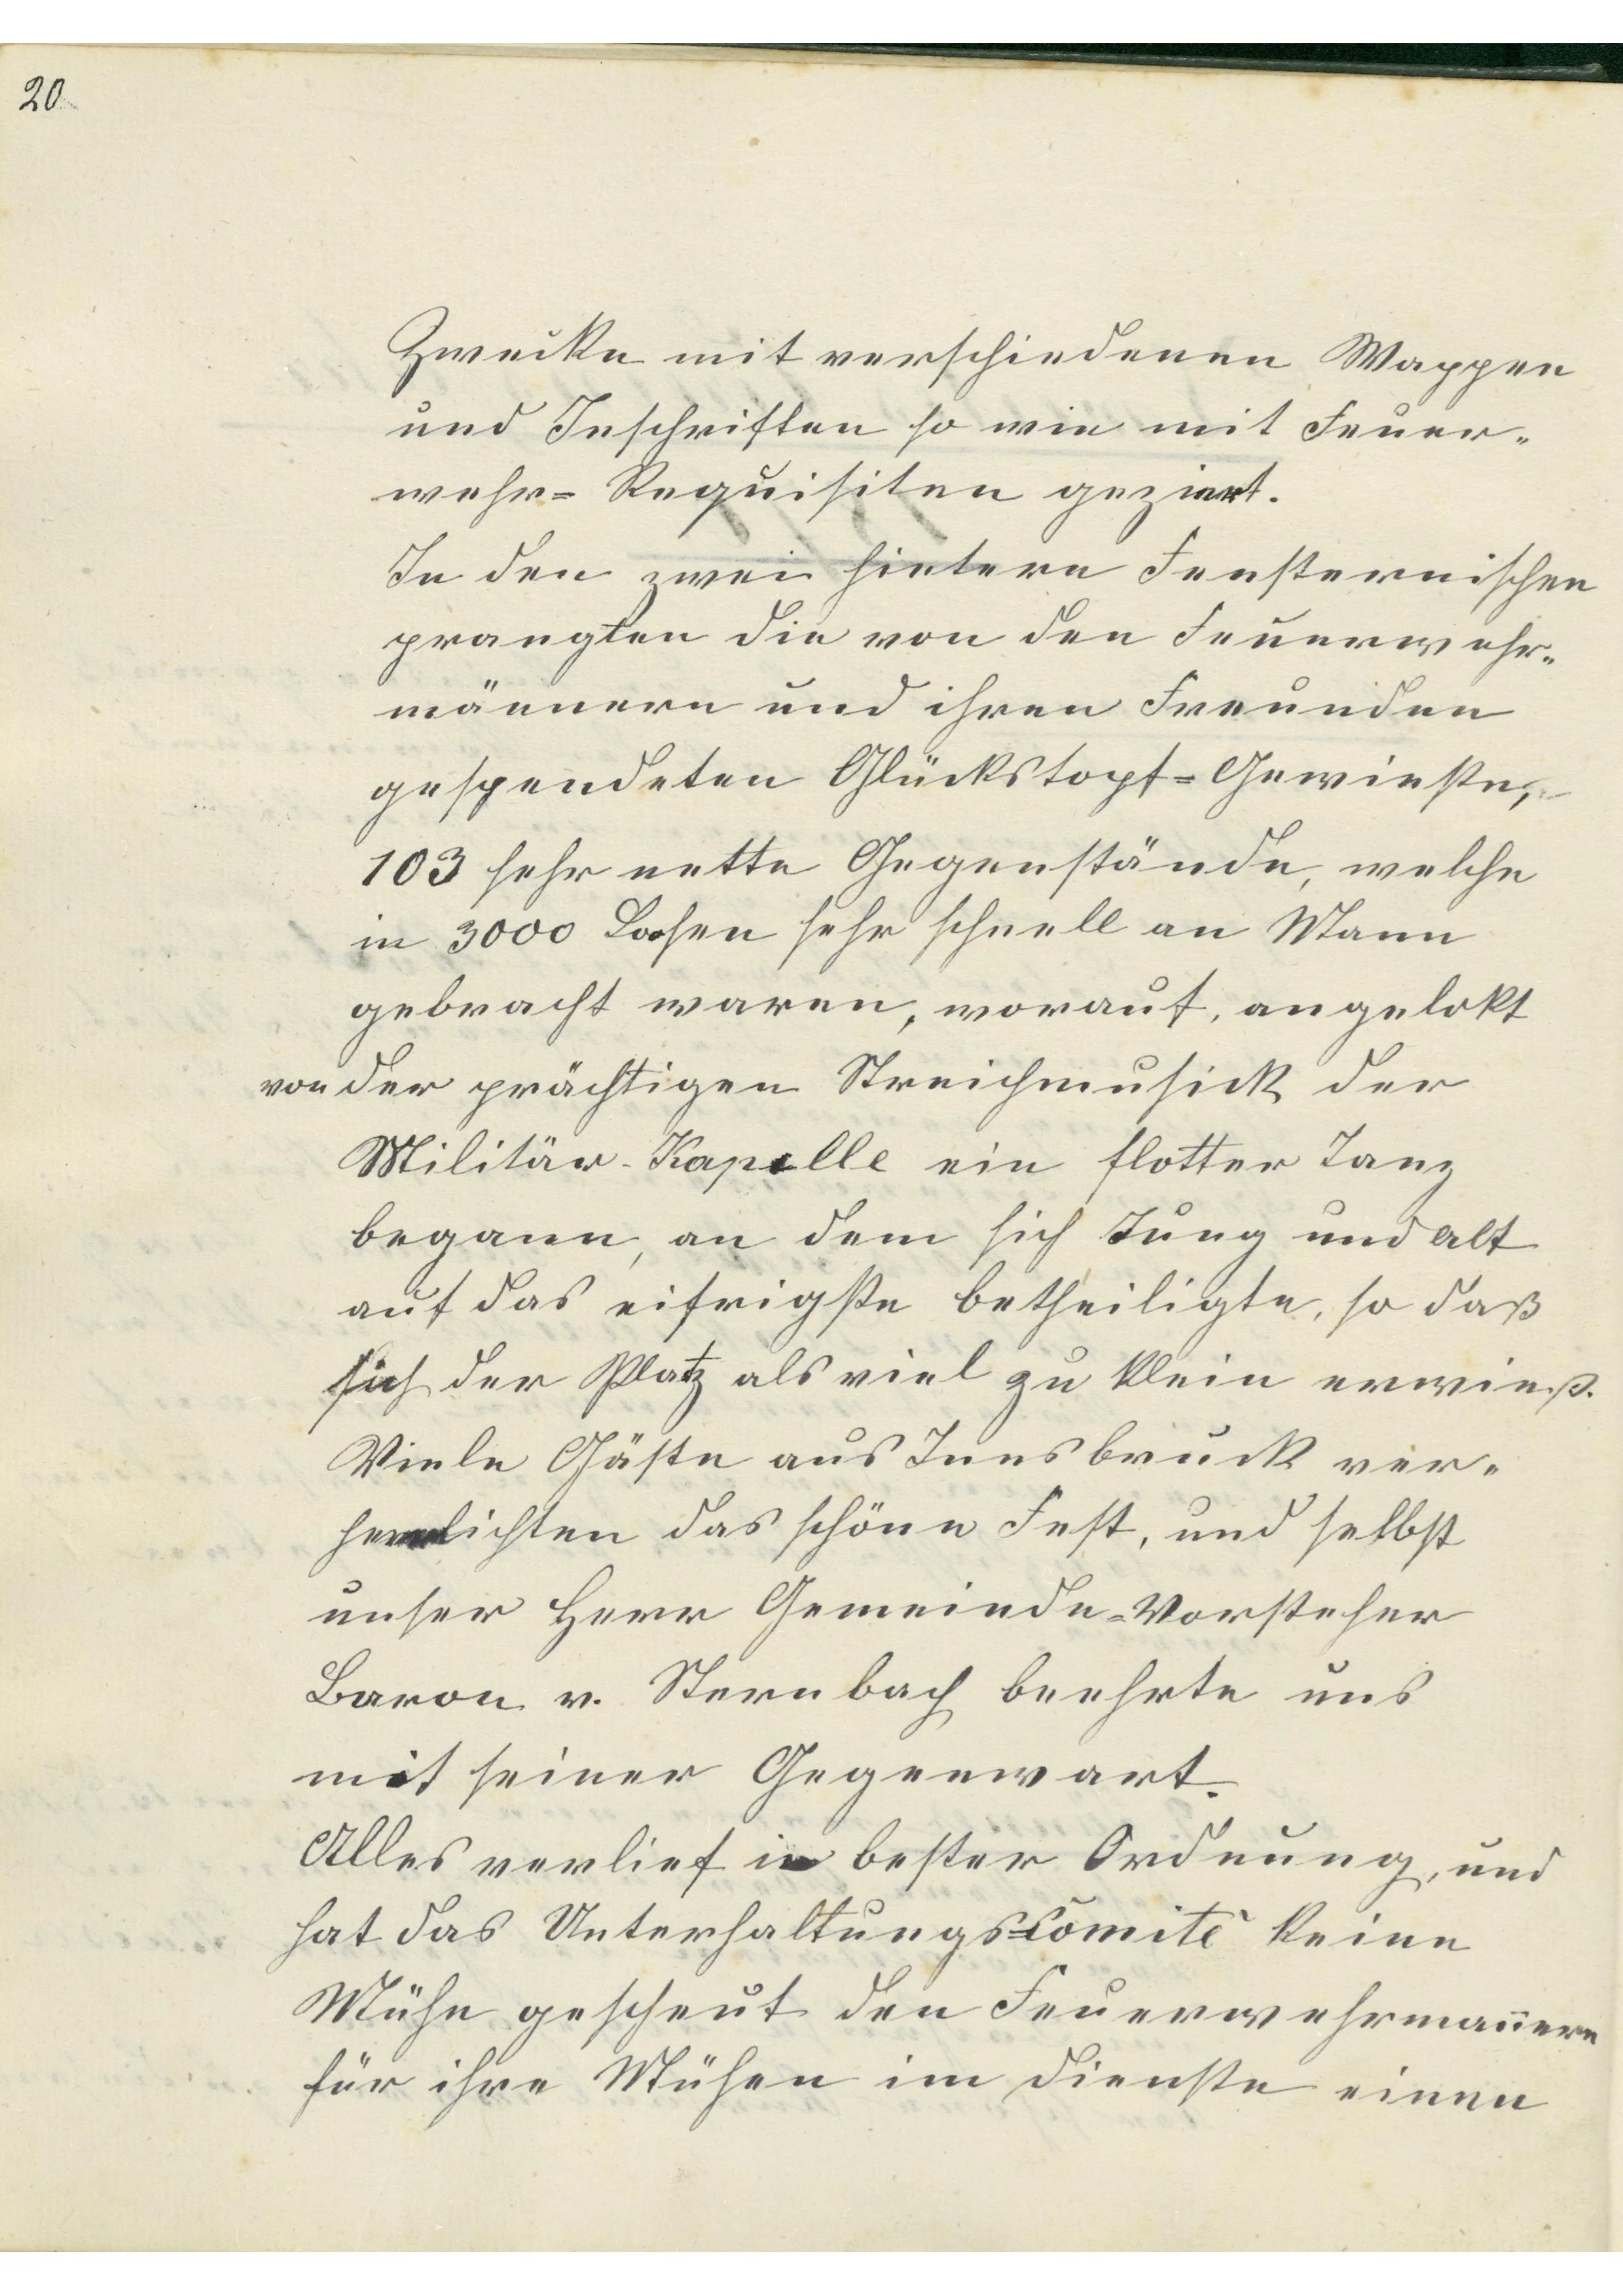 20
Zwecke mit verschiedenen Wappen
und Inschriften so wie mit Feuer-
wehr= Requisiten geziert.
In den zwei hintern Fensternischen
prangten die von den Feuerwehr-
männern und ihren Freunden
gespendeten Glückstopf=Gewinste,
103 sehr nette Gegenstände, welche
in 3000 Losen sehr schnell an Mann
gebracht waren, worauf, angelokt
von der prächtigen Streichmusick der
Militär-Kapelle ein flotter Tanz
begann, an dem sich Jung und alt
auf das eifrigste betheiligte, so daß
sich der Platz als viel zu klein erwieß.
Viele Gäste aus Innsbruck ver-
herrlichten das schöne Fest, und selbst
unser Herr Gemeinde=Vorsteher
Baron v. Sternbach beehrte uns
mit seiner Gegenwart.
Alles verlief in bester Ordnung, und
hat das Unterhaltungs=Comité keine
Mühe gescheut den Feuerwehrmannern
für ihre Mühen im Dienste einen